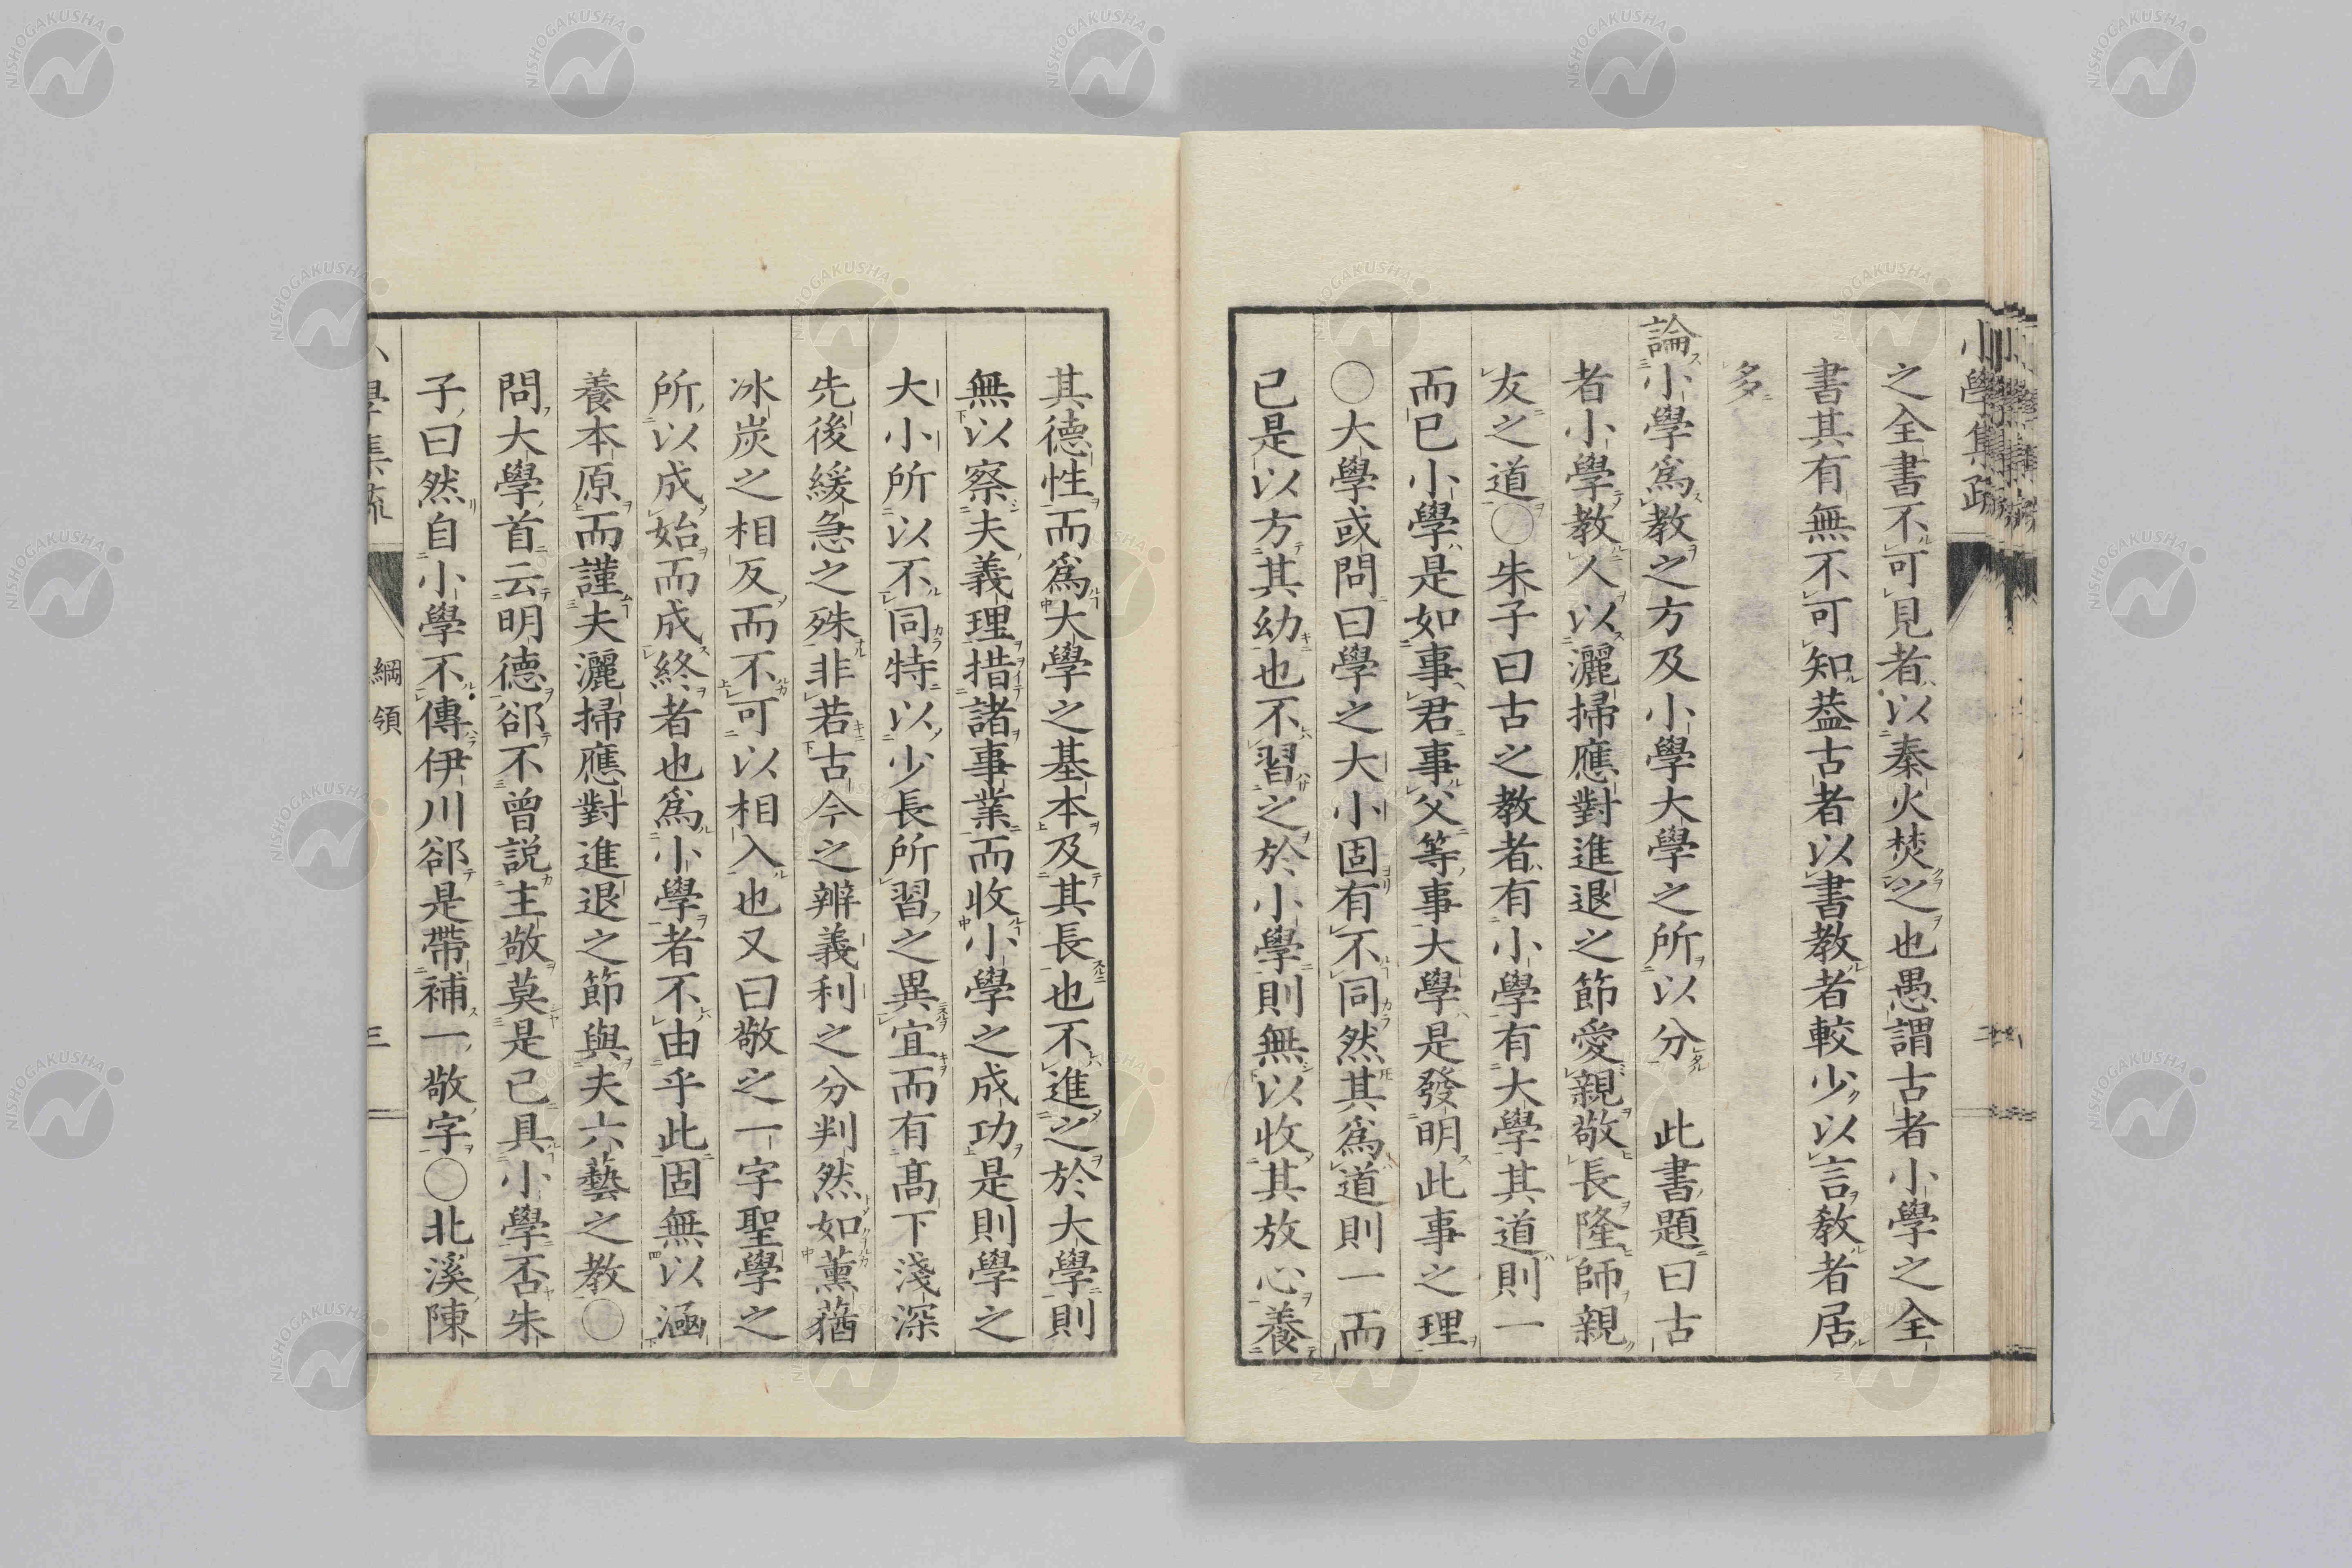 小學集疏
之全書不可見者以秦火焚之也愚謂古者小學之全
書其有無不可知葢古者以書教者較少以言教者居
多
論小學爲教之方及小學大學之所以分 此書題曰古
者小學教人以灑掃應對進退之節愛親敬長隆師親
友之道○朱子曰古之教者有小學有大學其道則一
而已小學是如事君事父等事大學是發明此事之理
○大學或問曰學之大小固有不同然其爲道則一而
已是以方其幼也不習之於小學則無以收其放心養
其德性而爲大學之基本及其長也不進之於大學則
無以察夫義理措諸事業而收小學之成功是則學之
大小所以不同特以少長所習之異宜而有高下淺深
先後緩急之殊非若古今之辨義利之分判然如薰蕕
冰炭之相反而不可以相入也又曰敬之一字聖學之
所以成始而成終者也爲小學者不由乎此固無以涵
養本原而謹夫灑掃應對進退之節與夫六藝之教○
問大學首云明德郤不曾説主敬莫是已具小學否朱
子曰然自小學不傳伊川郤是帶補一敬字○北溪陳
小學集疏 綱領 三